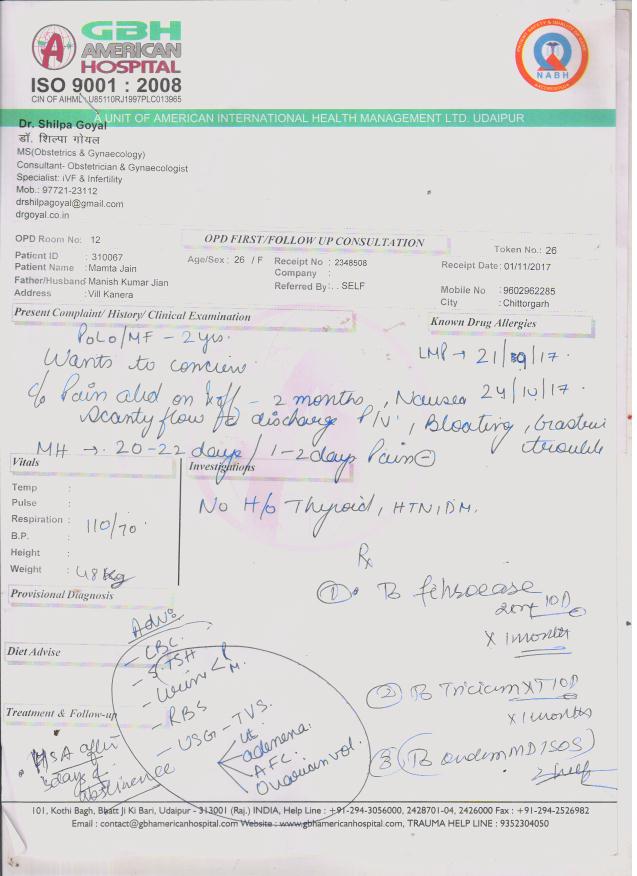 GBH
AMERICAN
HOSPITAL
ISO 9001 : 2008
CIN OF AIHML : U85110RJ1997PLC013965
PATIENT SAFETY & QUALITY OF CARE
NABH
A UNIT OF AMERICAN INTERNATIONAL HEALTH MANAGEMENT LTD. UDAIPUR
Dr. Shilpa Goyal
डॉ. शिल्पा गोयल
MS(Obstetrics & Gynaecology)
Consultant- Obstetrician & Gynaecologist
Specialist: iVF & Infertility
Mob.: 97721-23112
drshilpagoyal@gmail.com
drgoyal.co.in
OPD Room No: 12
OPD FIRST/FOLLOW UP CONSULTATION
Token No.: 26
Patient ID : 310067
Age/Sex : 26 / F
Receipt No : 2348508
Receipt Date: 01/11/2017
Patient Name : Mamta Jain
Company :
Father/Husband Manish Kumar Jian
Referred By: . SELF
Mobile No : 9602962285
Address : Vill Kanera
City : Chittorgarh
Present Complaint/ History/ Clinical Examination
Known Drug Allergies
P0L0/MF - 2 yrs.
LMP → 21/ /17.
Wants to concieve
24/10/17.
c/o Pain abd on & off - 2 months, Nausea
Scanty flow discharge P/V, Bloating, Gastric trouble
MH → 20-22 days / 1-2 days Pain
Vitals
Investigations
Temp :
Pulse :
Respiration :
B.P. : 110/70
Height :
Weight : 48 kg
No H/o Thyroid, HTN, DM.
Rx
Provisional Diagnosis
① 
10D
X 1 month
Adv:
- CBC
- S. TSH
- Urine < R M.
- RBS
- USG - TVS.
Ut
adenexa.
AFC.
Ovarian vol.
Diet Advise
②
X 1 months
Treatment & Follow-up
③ MD SOS
HSA after
3 days of
abstinence
101, Kothi Bagh, Bhatt Ji Ki Bari, Udaipur - 313001 (Raj.) INDIA, Help Line : +91-294-3056000, 2428701-04, 2426000 Fax : +91-294-2526982
Email : contact@gbhamericanhospital.com Website : www.gbhamericanhospital.com, TRAUMA HELP LINE : 9352304050